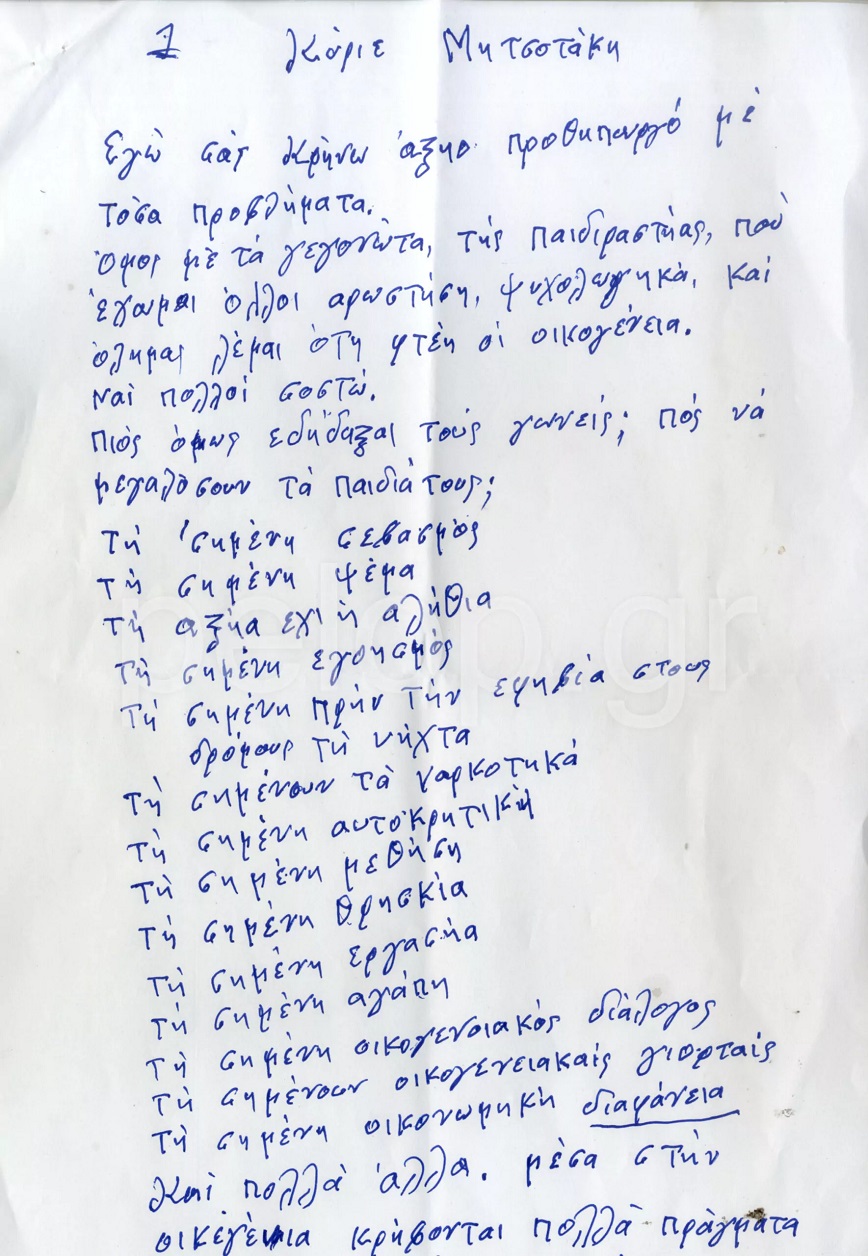 1 Κύριε Μητσοτάκη
Εγώ σάς κρήνω άξηο προθηπουργό μέ
τόσα προβλήματα.
όμος μέ τά γεγονώτα, τής παιδιραστήας, πού
έγωμαι όλλοι αρωστήση, ψυχολωγηκά, καί
όλημας λέμαι ότη φτέη οί οικογένεια.
Ναί πολλοί σοστώ.
Πιός όμως εδήδαξαι τούς γωνείς; πός νά
μεγαλόσουν τά παιδιά τους;
Τή σημένη σεβασμός
τή σημένη ψέμα
τή αξήα έχι ή αλήθια
τή σημένη εγοησμός
Τή σημένη πρήν τήν εφηβία στους
δρόμους τή νήχτα
τή σημένουν τά ναρκοτηκά
τή σημένη αυτοκρητική
τή σημένη μεθήση
τή σημένη θρησκία
τή σημένη εργασήα
τή σημένη αγάπη
τή σημένη οικογενοιακός διάλογος
τή σημένουν οικογενειακαίς γιορταίς
τή σημένη οικονωμηκή διαφάνεια
Καί πολλά άλλα. μέσα στήν
οικέγένια κρήβονται πολλά πράγματα
pelop.gr